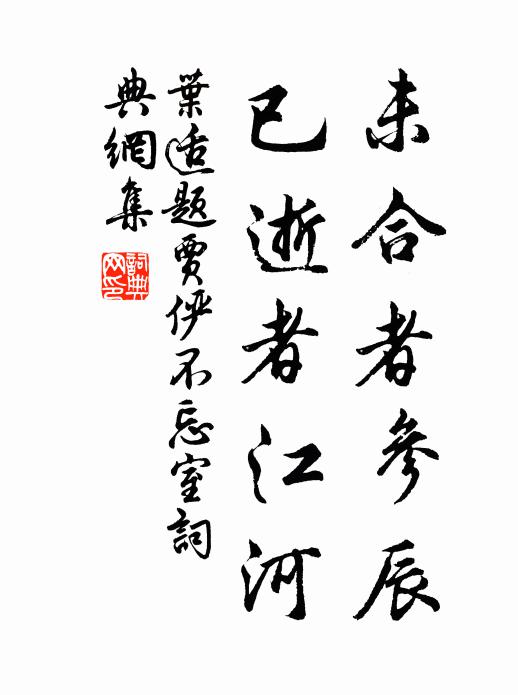 未合者參辰
已逝者江河
葉適題賈俨不忘室詞
典網集
詞典網印